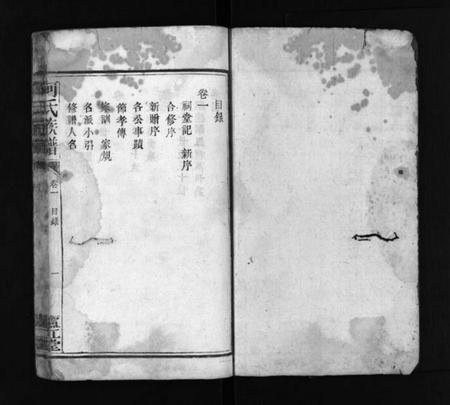 目錄
卷一
祠堂記 新序
合修序
新贈序
各公事蹟
節孝傳
家訓 家規
名派小引
修譜人名
何氏族譜 卷一 目錄 一